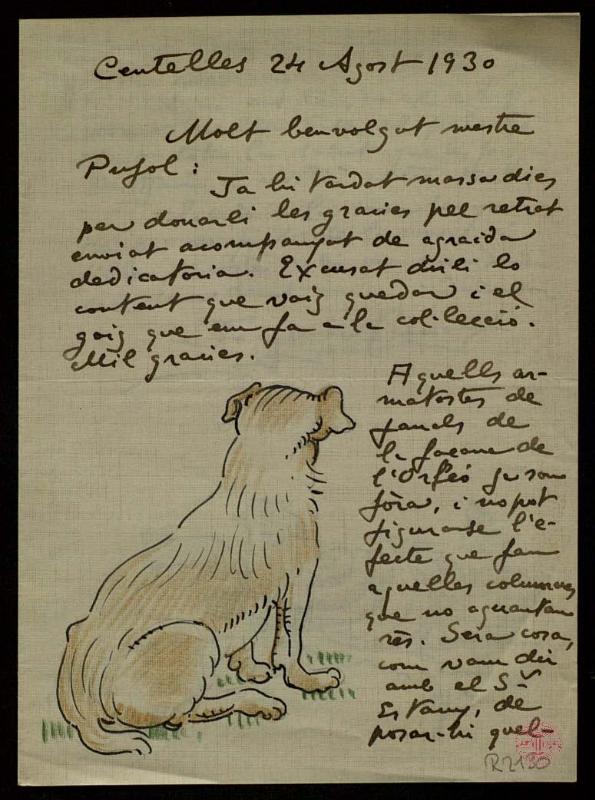 Centelles 24 Agost 1930
Molt benvolgut mestre
Pujol:
Ja hi tardat massa dies
per donarli les gracies pel retrat
enviat acompanyat de agraida
dedicatoria. Excusat dirli lo
content que vaig quedar i el
goig que em fa a la col·lecció.
Mil gracies.
Aquells ar-
matostes de
fanals de
la façana de
l'Orfeó ja son
fòra, i no pot
figurarse l'e-
fecte que fan
aquelles columnes
que no aguantan
rès. Sera cosa,
com vam dir
amb el Sr
Estany, de
posar-hi quel-
R2130